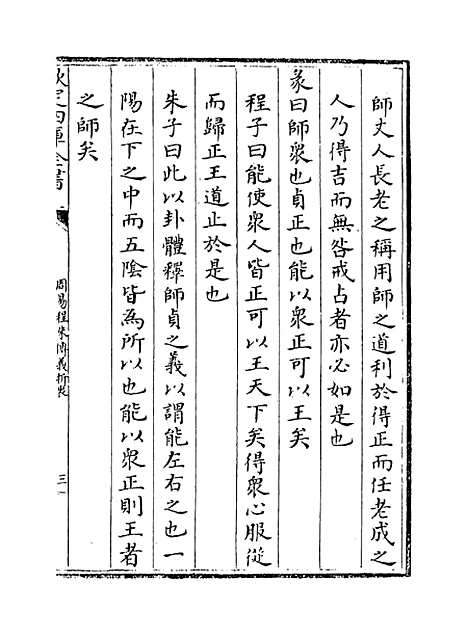 師丈人長老之稱用師之道利於得正而任老成之
人乃得吉而無咎戒占者亦必如是也
彖曰師衆也貞正也能以衆正可以王矣
程子曰能使衆人皆正可以王天下矣得衆心服從
而歸正王道止於是也
朱子曰此以卦體釋師貞之義以謂能左右之也一
陽在下之中而五陰皆為所以也能以衆正則王者
之師矣
欽定四庫全書
周易程朱傳義折衷
三一